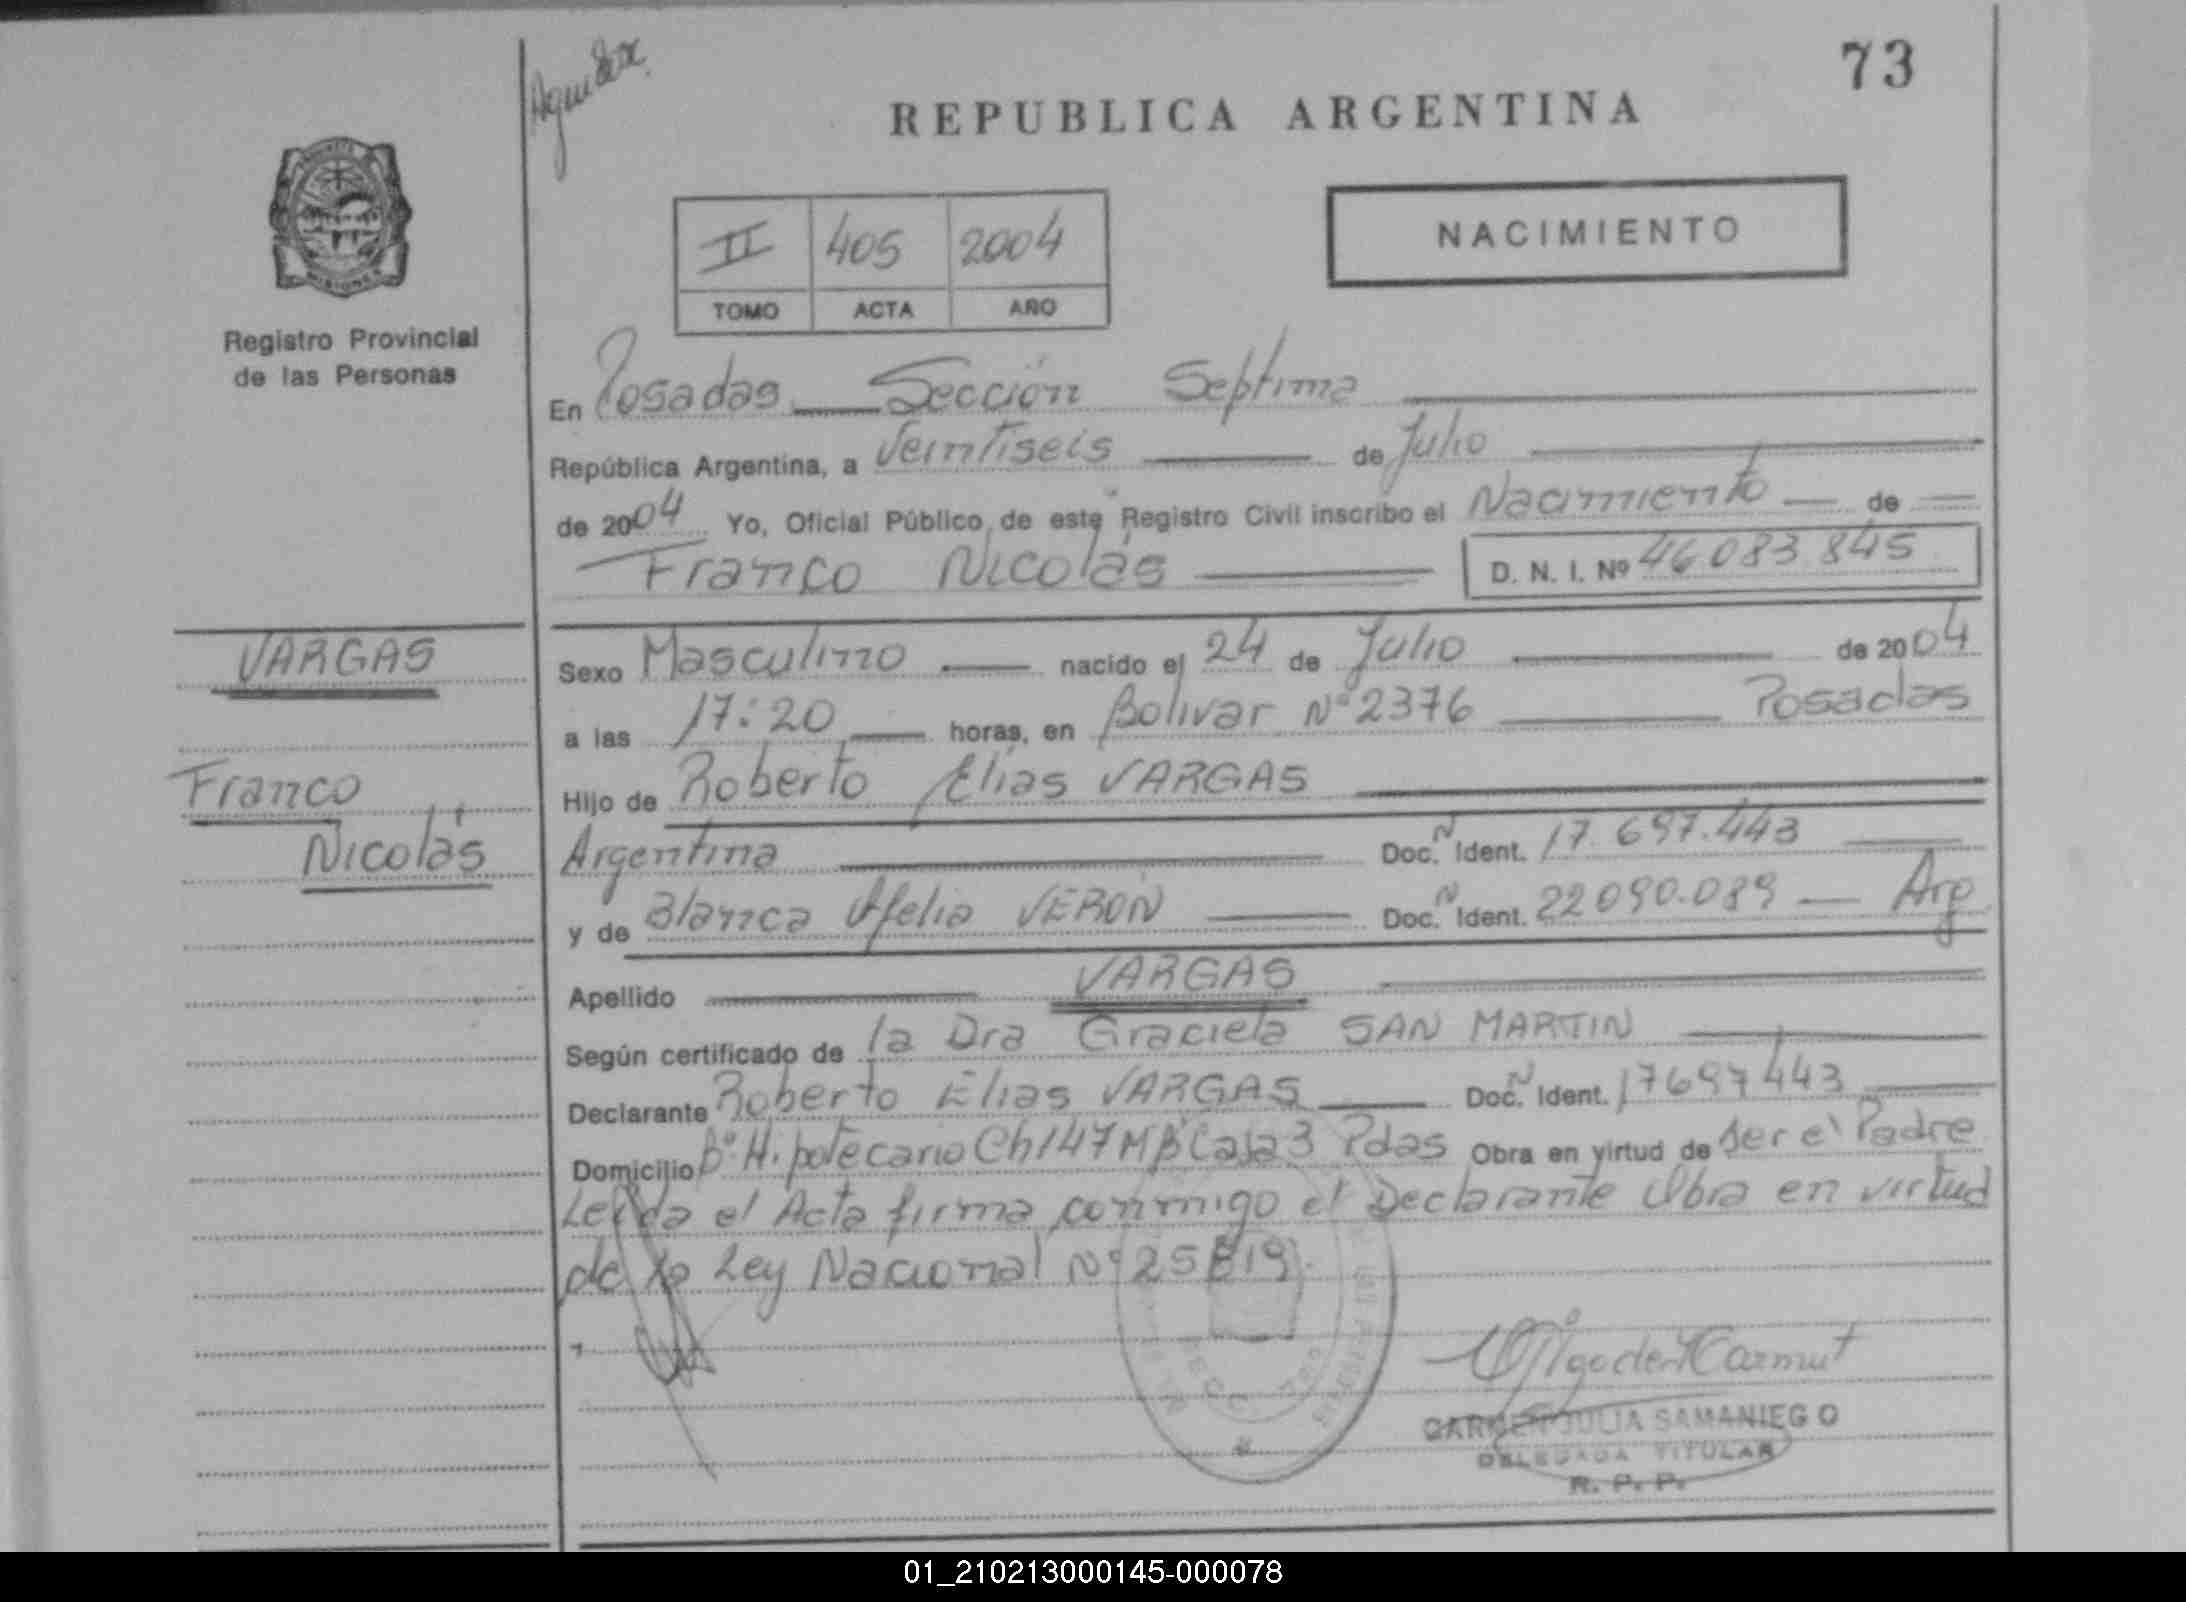 73
REPUBLICA ARGENTINA
NACIMIENTO
II 405 2004
TOMO ACTA AÑO
Registro Provincial
de las Personas
En Posadas Sección Septima
República Argentina, a Veintiseis de Julio
de 2004 Yo, Oficial Público de este Registro Civil inscribo el Nacimiento de
Franco Nicolás D. N. I. Nº 46.083.845
VARGAS
Franco
Nicolás
Sexo Masculino nacido el 24 de Julio de 2004
a las 17:20 horas, en Bolivar Nº 2376 Posadas
Hijo de Roberto Elias VARGAS
Argentina Doc. N Ident. 17.697.443
y de Blanca Ofelia VERON Doc. N Ident. 22090.089 Arg
Apellido VARGAS
Según certificado de la Dra Graciela SAN MARTIN
Declarante Roberto Elias VARGAS Doc. N Ident. 17697443
Domicilio Bº Hipotecario Ch147 M B Casa 3 Pdas Obra en virtud de Ser el Padre
Leída el Acta firma conmigo el Declarante Obra en virtud
de la Ley Nacional Nº 25819.
CARMEN JULIA SAMANIEGO
DELEGADA TITULAR
R. P. P.
01_210213000145-000078